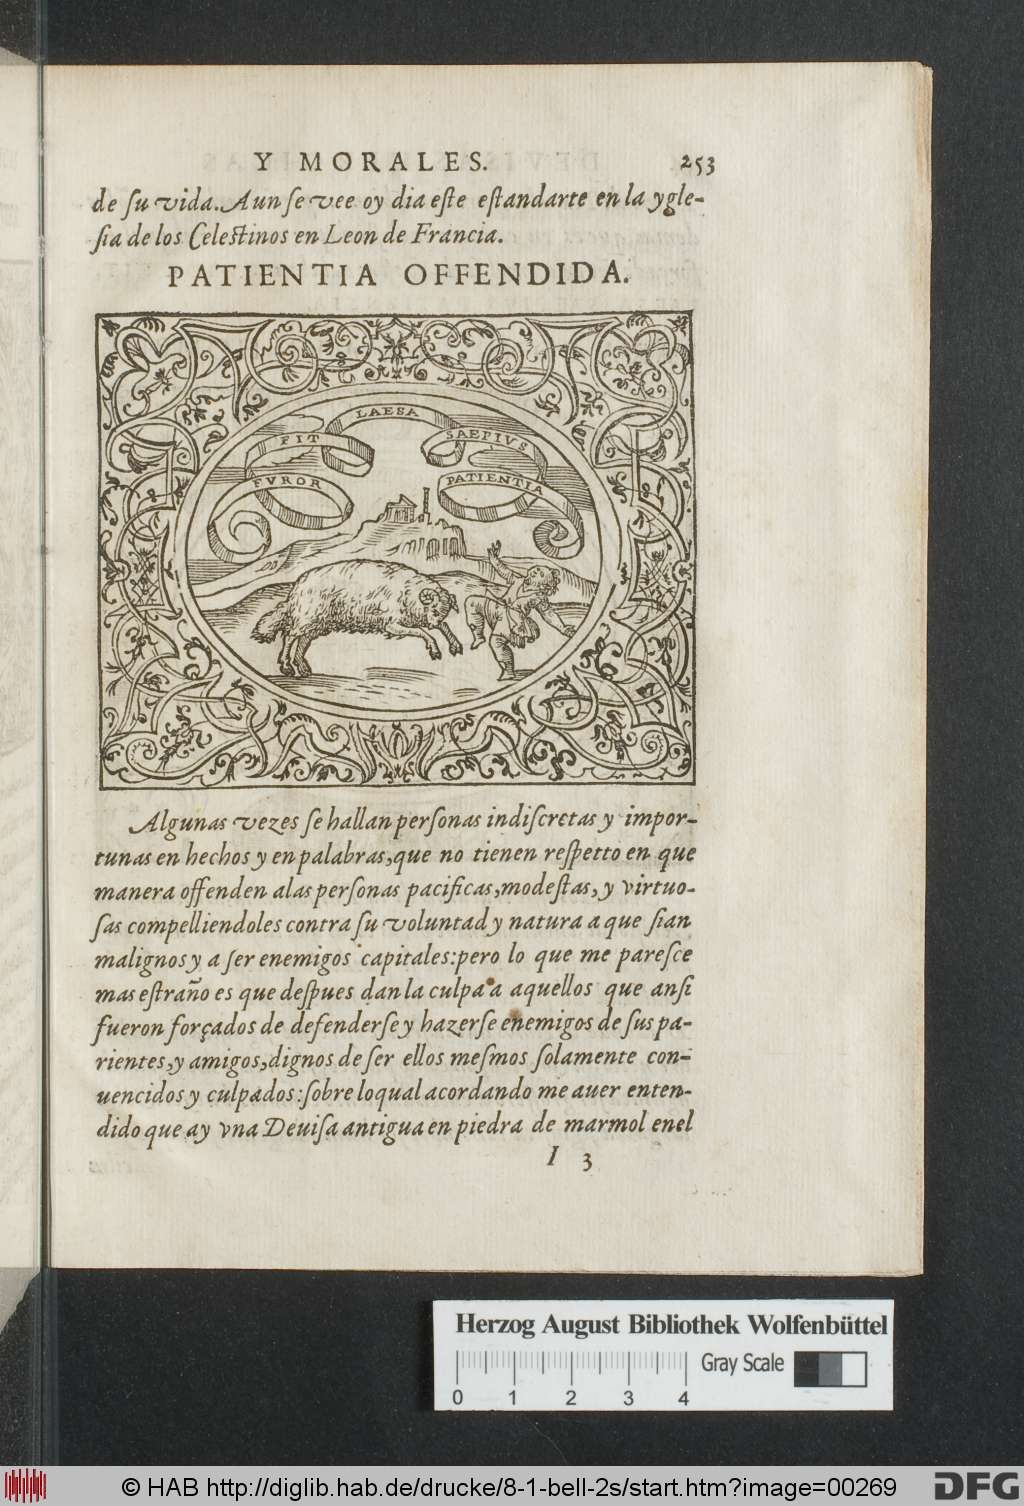 Y MORALES. 253
de ſu vida. Aun ſe vee oy dia eſte eſtandarte en la ygle-
ſia de los Celeſtinos en Leon de Francia.
PATIENTIA OFFENDIDA.
FVROR FIT LAESA SAEPIVS PATIENTIA
Algunas vezes ſe hallan perſonas indiſcretas y impor-
tunas en hechos y en palabras, que no tienen reſpetto en que
manera offenden alas perſonas pacificas, modeſtas, y virtuo-
ſas compelliendoles contra ſu voluntad y natura a que ſian
malignos y a ſer enemigos capitales: pero lo que me pareſce
mas eſtraño es que deſpues dan la culpa a aquellos que anſi
fueron forçados de defenderſe y hazerſe enemigos de ſus pa-
rientes, y amigos, dignos de ſer ellos meſmos ſolamente con-
uencidos y culpados: ſobre loqual acordando me auer enten-
dido que ay vna Deuiſa antigua en piedra de marmol enel
I 3
Herzog August Bibliothek Wolfenbüttel
Gray Scale
0 1 2 3 4
© HAB http://diglib.hab.de/drucke/8-1-bell-2s/start.htm?image=00269
DFG